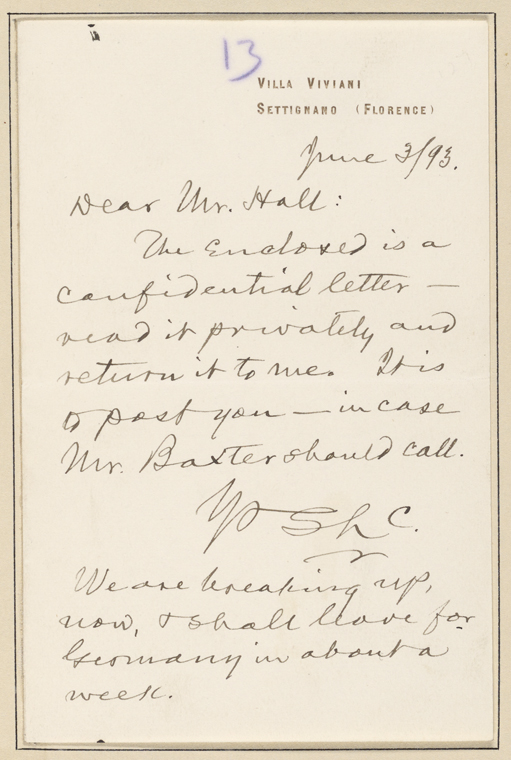 13
VILLA VIVIANI
SETTIGNANO (FLORENCE)
June 3/93.
Dear Mr. Hall:
The enclosed is a
confidential letter —
read it privately and
return it to me. It is
to post you — in case
Mr. Baxter should call.
SLC.
We are breaking up,
now, & shall leave for
Germany in about a
week.